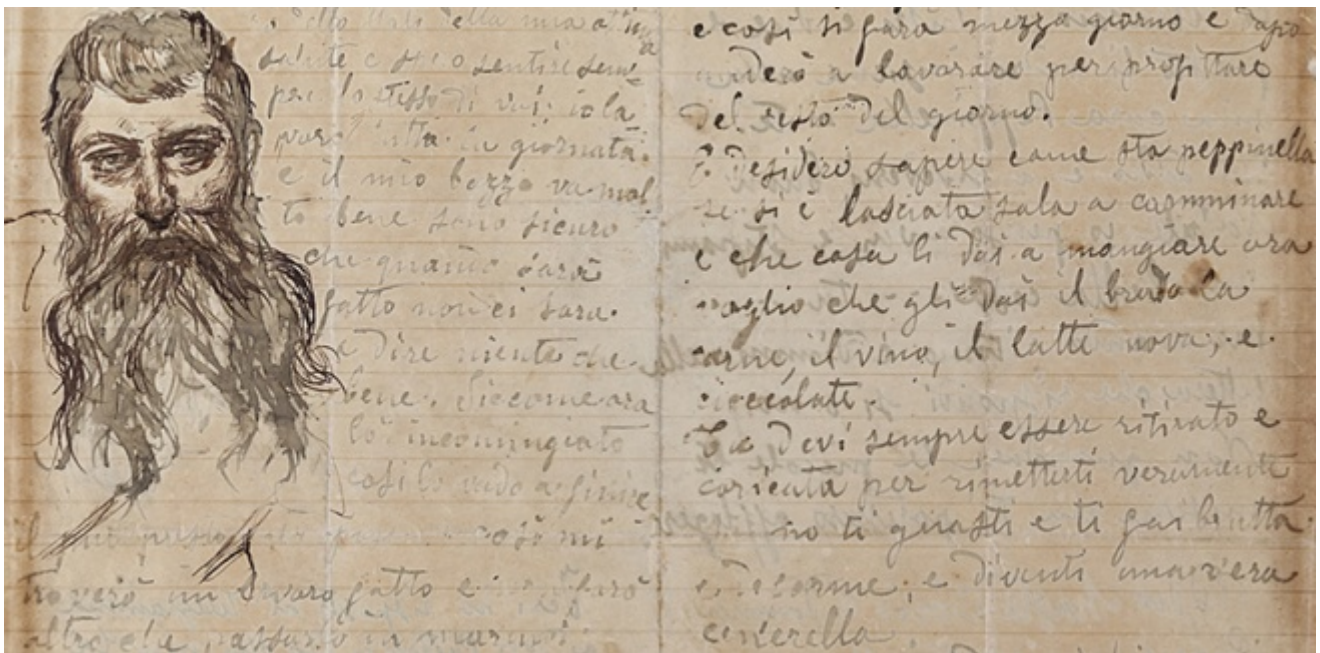 della mia ottima
salute e sentire
per lo stesso di voi: io la
tutta la giornata.
e il mio bozzo va mol
to bene sono sicuro
che quando sarà
fatto non ci sara.
a dire niente che
bene. Siccome ora
lo incomingiato
così lo vado a finire
il così mi
troverò un lavoro fatto e
altro che passarlo in marmo.
e così si farà mezzo giorno e dopo
a lavorare per profittare
del resto del giorno.
Desidero sapere come sta peppinella
se si è lasciata sola a camminare
e che cosa li dai a mangiare ora
voglio che gli dai il brodo la
carne, il vino, il latte nova, e
cioccolate.
Tu devi sempre essere ritirato e
coricata per rimetterti veramente
no ti guasti e ti fai brutta
e diforme, e diventi una vera
cenerella